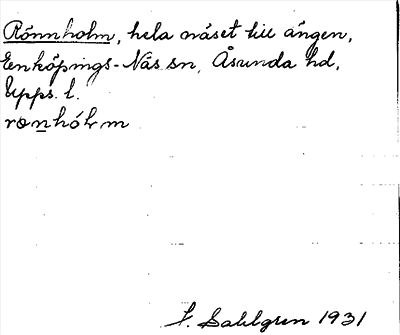 Rönnholm, hela näset till ängen,
Enköpings-Näs sn, Åsunda hd,
Upps. l.
Sahlgren 1931